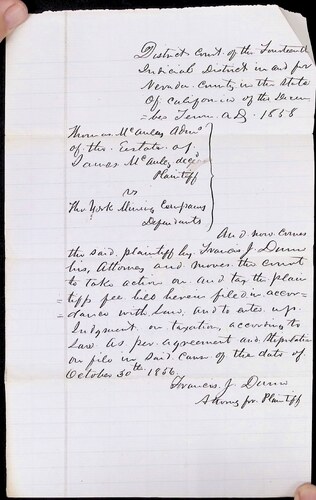 District Court of the Fourteenth
Judicial District in and for
Nevada County in the State
Of California of the Decem
=ber Term A.D. 1858
Thomas McAuley Admr
of the Estate of
James McAuley decd
Plaintiff
vs
The York Mining Company
Defendants
And now comes
the said plaintiff by Francis J. Dunn
his Attorney and moves the court
to take action on and tax the plain
tiffs fee bill herein filed in accor=
=dance with Law, and to enter up
Judgment on taxation, according to
Law as per agreement and Stipulation
on file in said cause of the date of
October 30th 1856.
Francis J Dunn
Attorney for Plaintiff